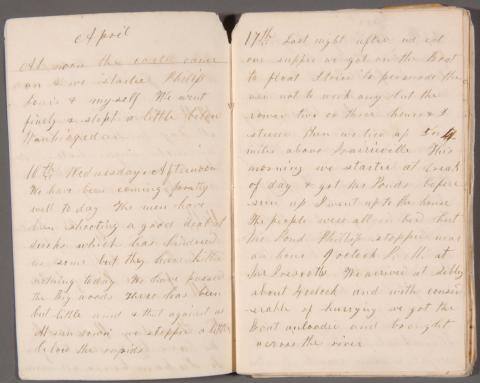 April
At noon the cattle came
on & we started Philip
& myself We went
finely & slept a little below

16th Wednesday Afternoon
We have been coming pretty
well to day The men have
been shooting a good deal at
which has hindered
us some but they have killed
nothing today We have passed
the big woods There has been
but little wind & that against us
At sun down we stopped a little
below the rapids
17th Last night after we eat
our supper we got on the Boat
to float I tried to persuade the
men not to work any but the
rowed two or three hours & I
steered then we tied up 4
miles above Prairieville This
morning we started at break
of day & got to Mr Ponds before
sun up I went up to the house
The people were all in bed but
Mr Pond Philip stopped near
an hour 9 oclock A. M. at
Mr Prescotts We arrived at
about 4 oclock and with consid
erable of hurrying we got the
Boat unloaded and brought
across the river